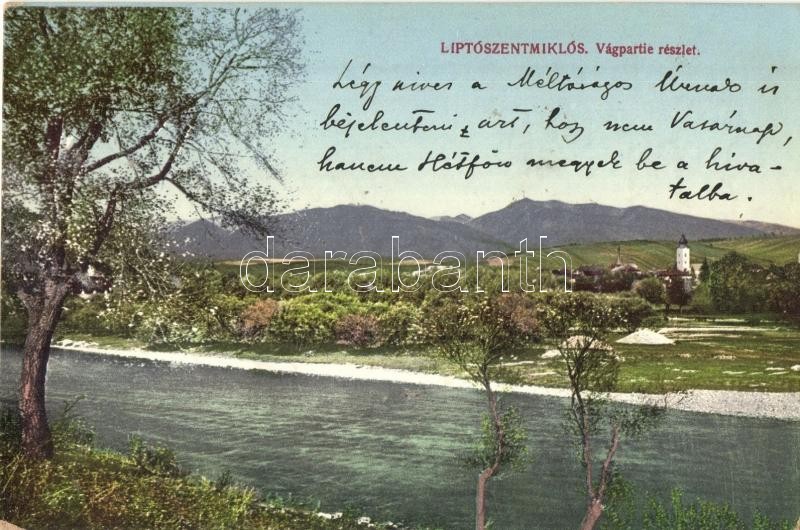 LIPTÓSZENTMIKLÓS. Vágpartie részlet.
Légy szives a Méltóságos Úrnak is
bejelenteni azt, hogy nem Vasárnap,
hanem Hétfőn megyek be a hiva-
talba.
darabanth